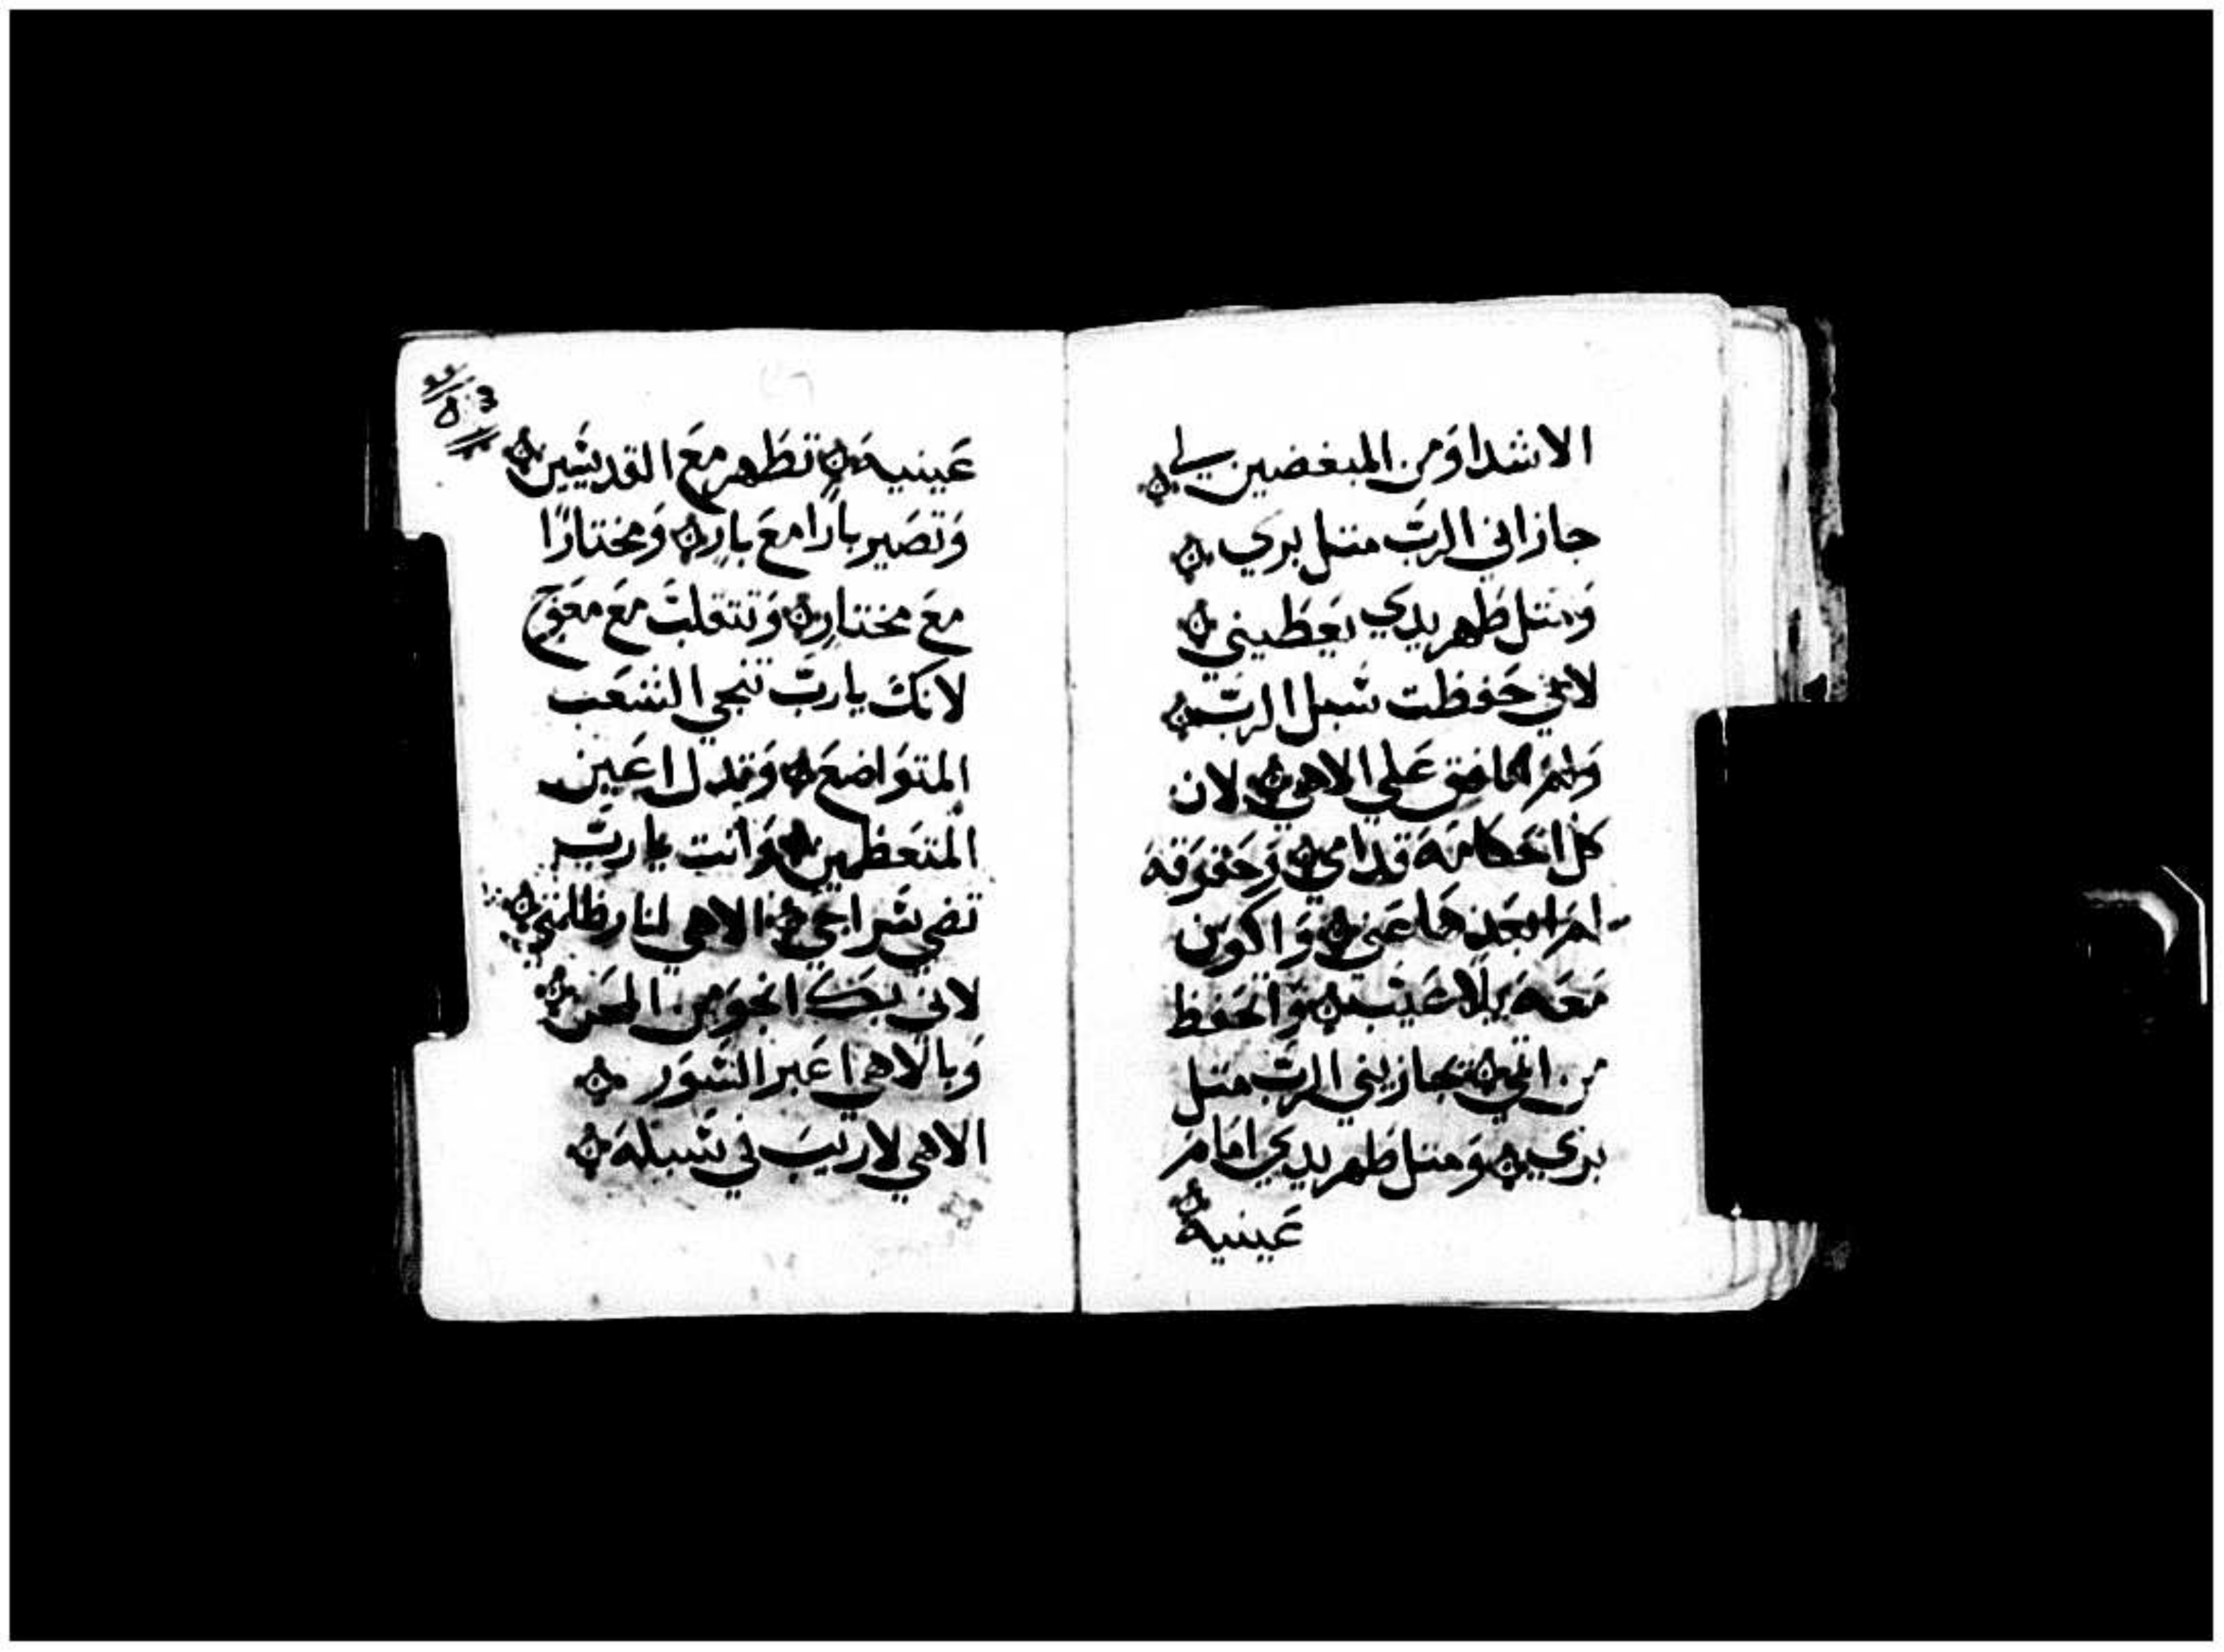 الاشدا وَمن المبغضين لي
جازاني الربّ متل بري
وَمتل طَهر يدي يعَطَيني
لانني حَفظت سُبل الربّ
وَلمَ انافق عَلي الاهي لان
كل احَكامَه قدامي وَحَقوَقه
لمَ ابعَدهَا عَني وَاكوَن
مَعَه بلا عَيبَ وَاتحَفظ
من اتمي تجازيني الربّ متل
بري وَمتل طَهر يدي امَامَ
عَينيه
عَينيه تطَهر معَ القديسَين
وَتصَير بارًا معَ بار وَمختارًا
معَ مختار وَتتقلبَ معَ معَوَج
لانكَ ياربّ تنجي الشعَب
المتوَاضعَ وَتدل اعَين
المتعَظمين وَانت ياربّ
تضي سَراجي الاهي لنار ظلمتي
لاني بكَ انجوَ من المحَن
وَبالاهي اعَبر السَوَر
الاهي لاريبَ في سَبله